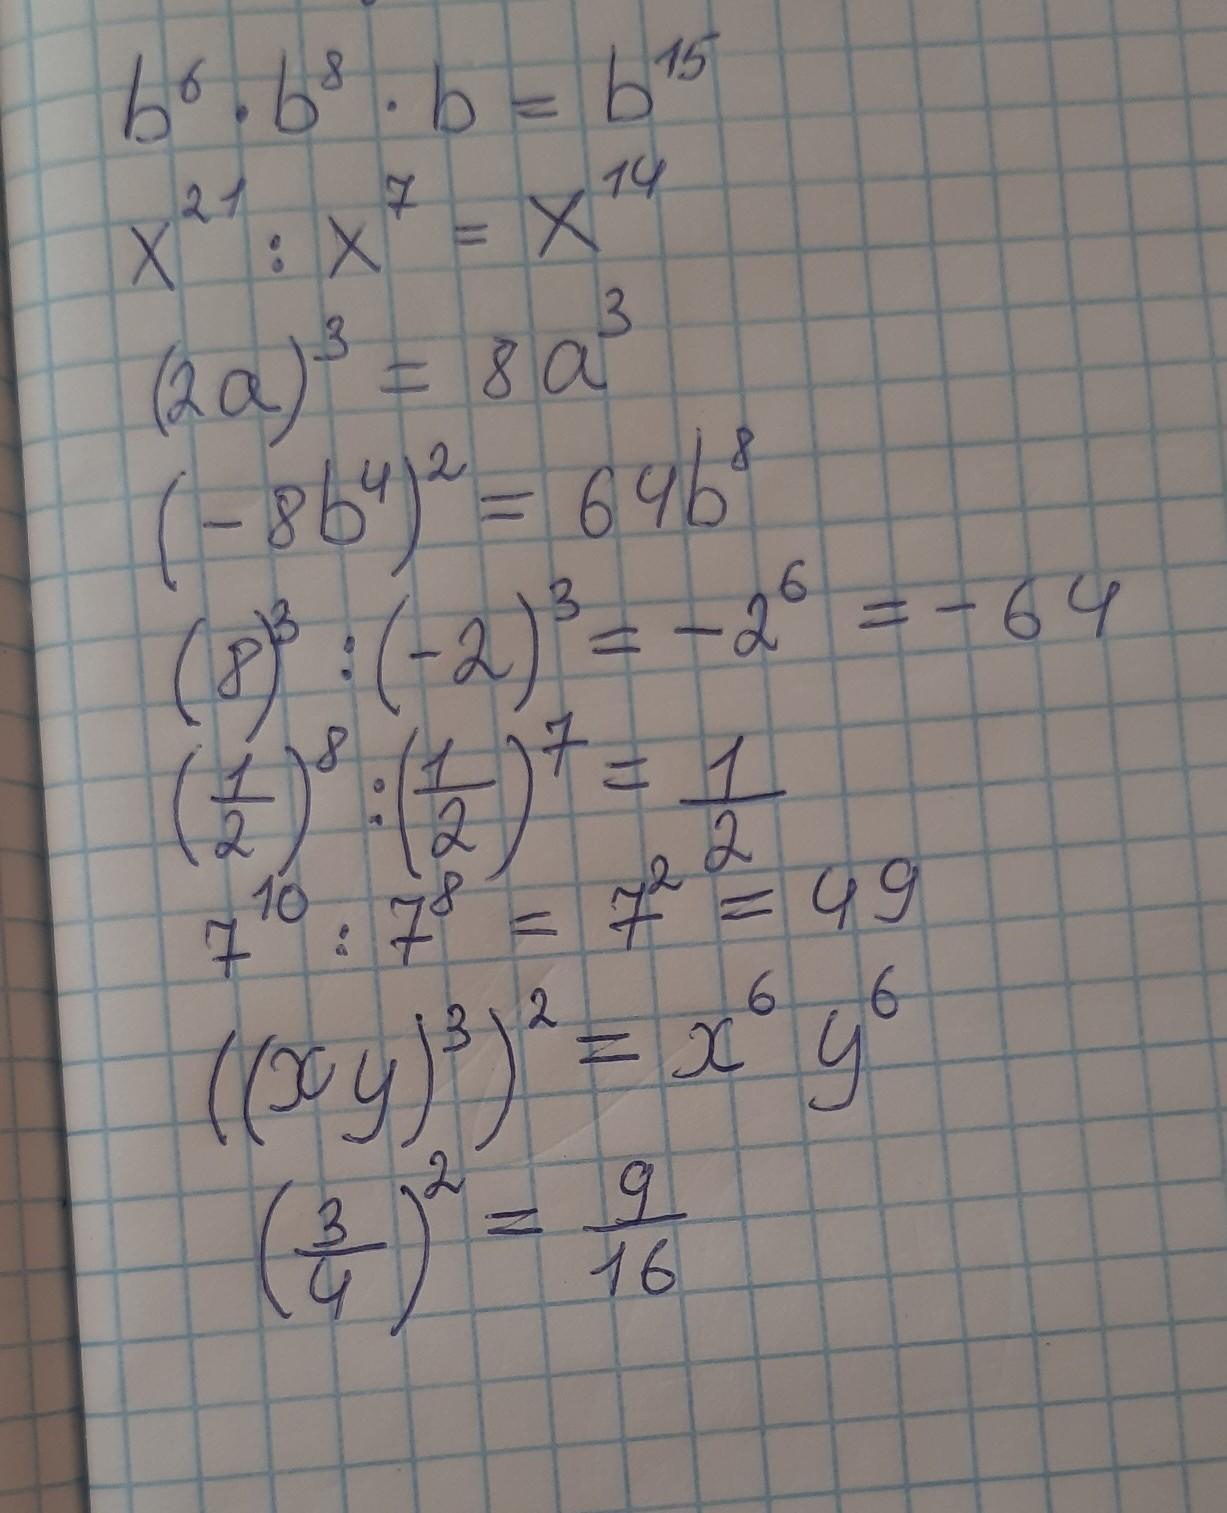 b⁶ · b⁸ · b = b¹⁵
x²¹ : x⁷ = x¹⁴
(2a)³ = 8a³
(-8b⁴)² = 64b⁸
(8)³ : (-2)³ = -2⁶ = -64
(1/2)⁸ : (1/2)⁷ = 1/2
7¹⁰ : 7⁸ = 7² = 49
((xy)³)² = x⁶ y⁶
(3/4)² = 9/16